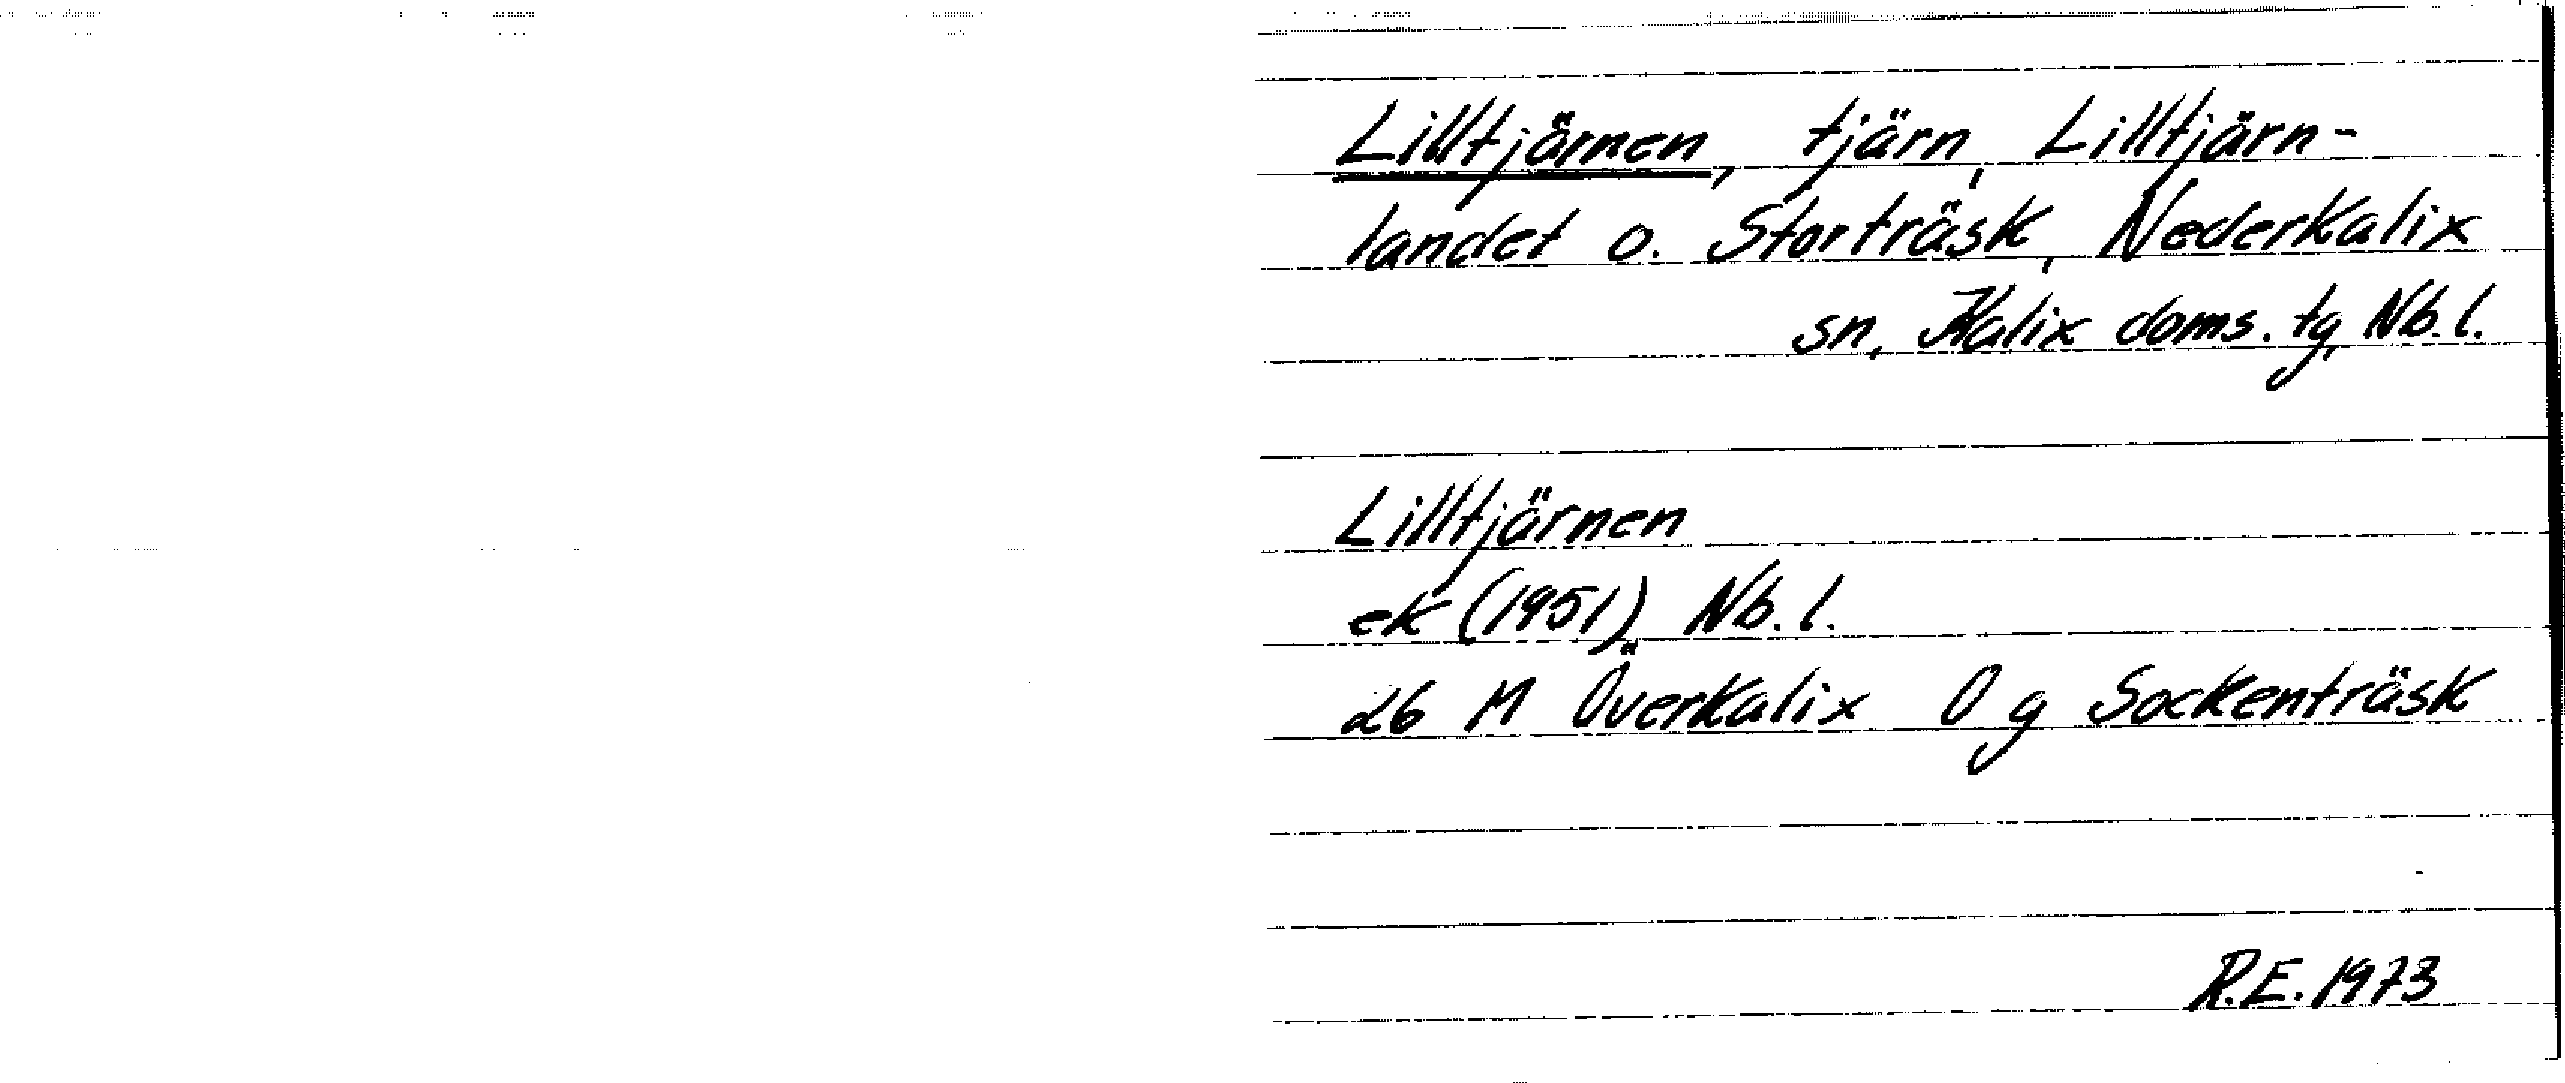 Lilltjärnen, tjärn, Lilltjärn-
landet o. Storträsk, Nederkalix
sn, Kalix doms. tg, Nb. l.
Lilltjärnen
ek (1951) Nb. l.
26 M Överkalix O g Sockenträsk
R.E. 1973